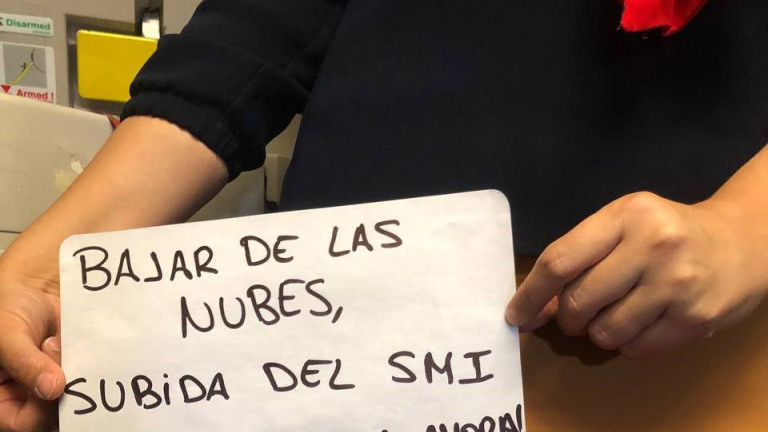 Disarmed
Armed !
BAJAR DE LAS
NUBES,
SUBIDA DEL SMI
AHORA!